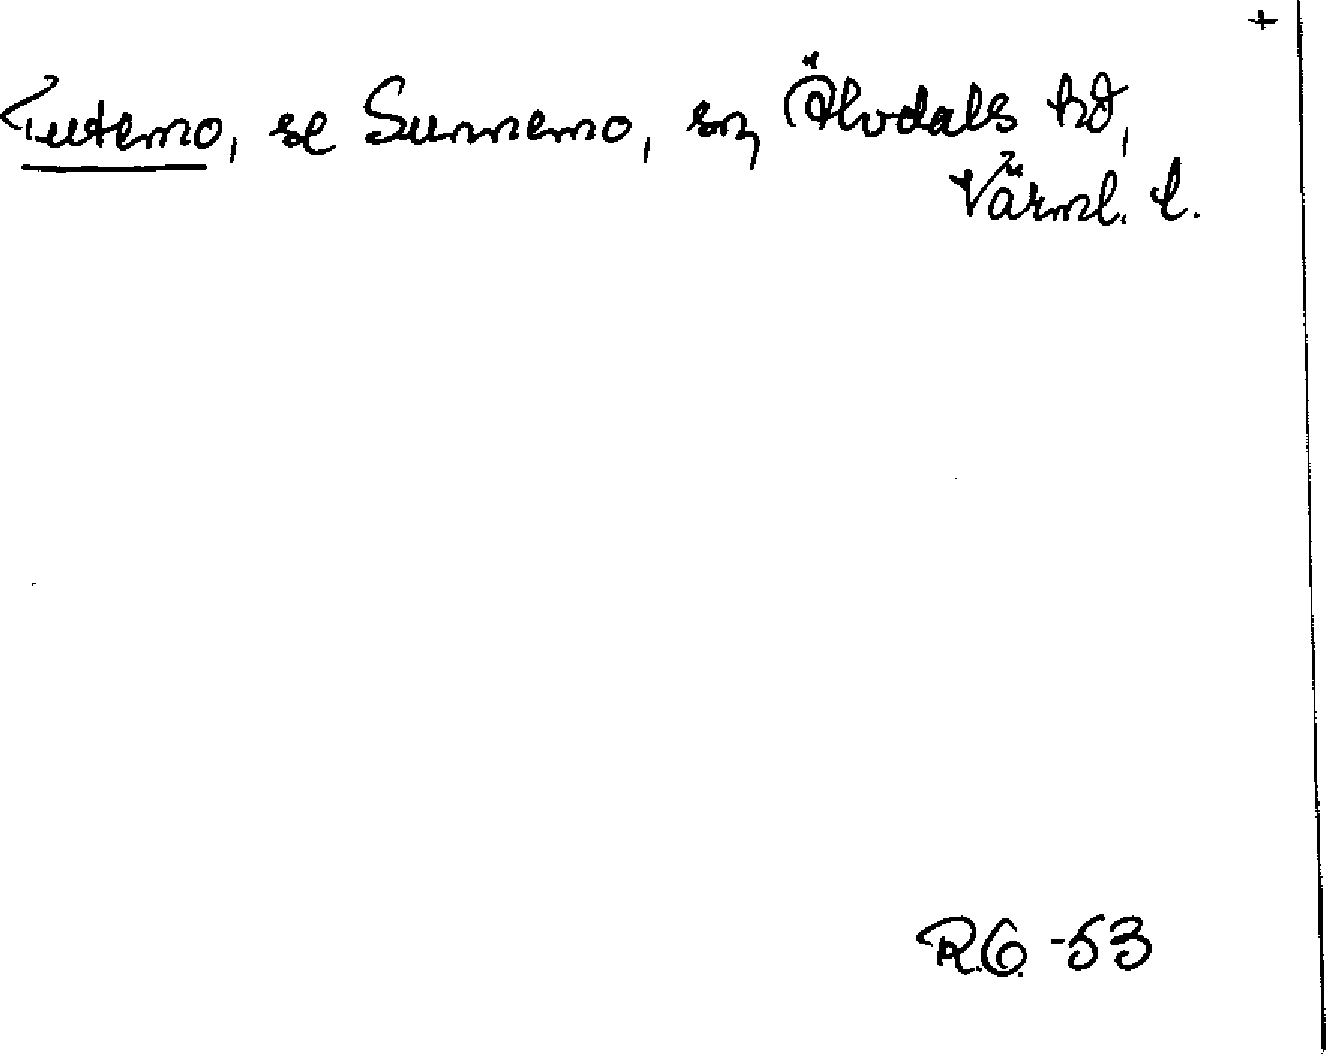 +
Tutemo, se Sunnemo, sn, Älvdals hd,
Värml. l.
R.G. -53